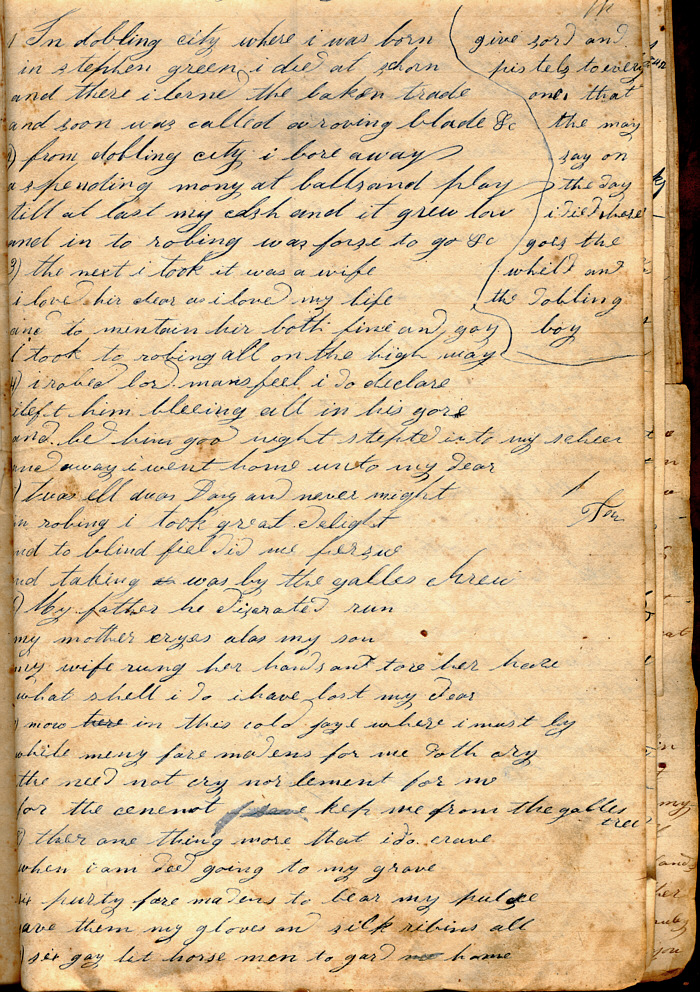 1 In dobling city where i was born
in stephen green i died at schorn
and there i lerned the baken trade
and soon was called a roving blade &c
) from dobling city i bore away
a spending mony at balls and play
till at last my cash and it grew low
and in to robing was forse to go &c
3) the next i took it was a wife
i loved hir dear as i loved my life
and to mentain hir both fine and gay
i took to robing all on the high way
4) i robed lord mansfeel i do declare
i left him bleeing all in his gore
and bed him good night stepted in to my scheer
and away i went home unto my dear
) twas all day and never night
in robing i took great delight
nd to blind fiel did me persue
nd taking was by the galles chreu
) My father he diserated run
my mother cryes alas my son
my wife rung her hands and tore her haire
what shell i do i have lost my dear
) now here in this cold jaye where i must ly
while meny fare madens for me doth cry
the need not cry nor lement for me
for the cenenot kep me from the galles
tree
) ther one thing more that i do crave
when i am ded going to my grave
six purty fare madens to bear my
ave them my gloves and silk ribins all
) six gay lit horse men to gard me home
give sord and
pistels to every
one that
the may
say on
the day
i died here
goes the
whild and
the dobling
boy